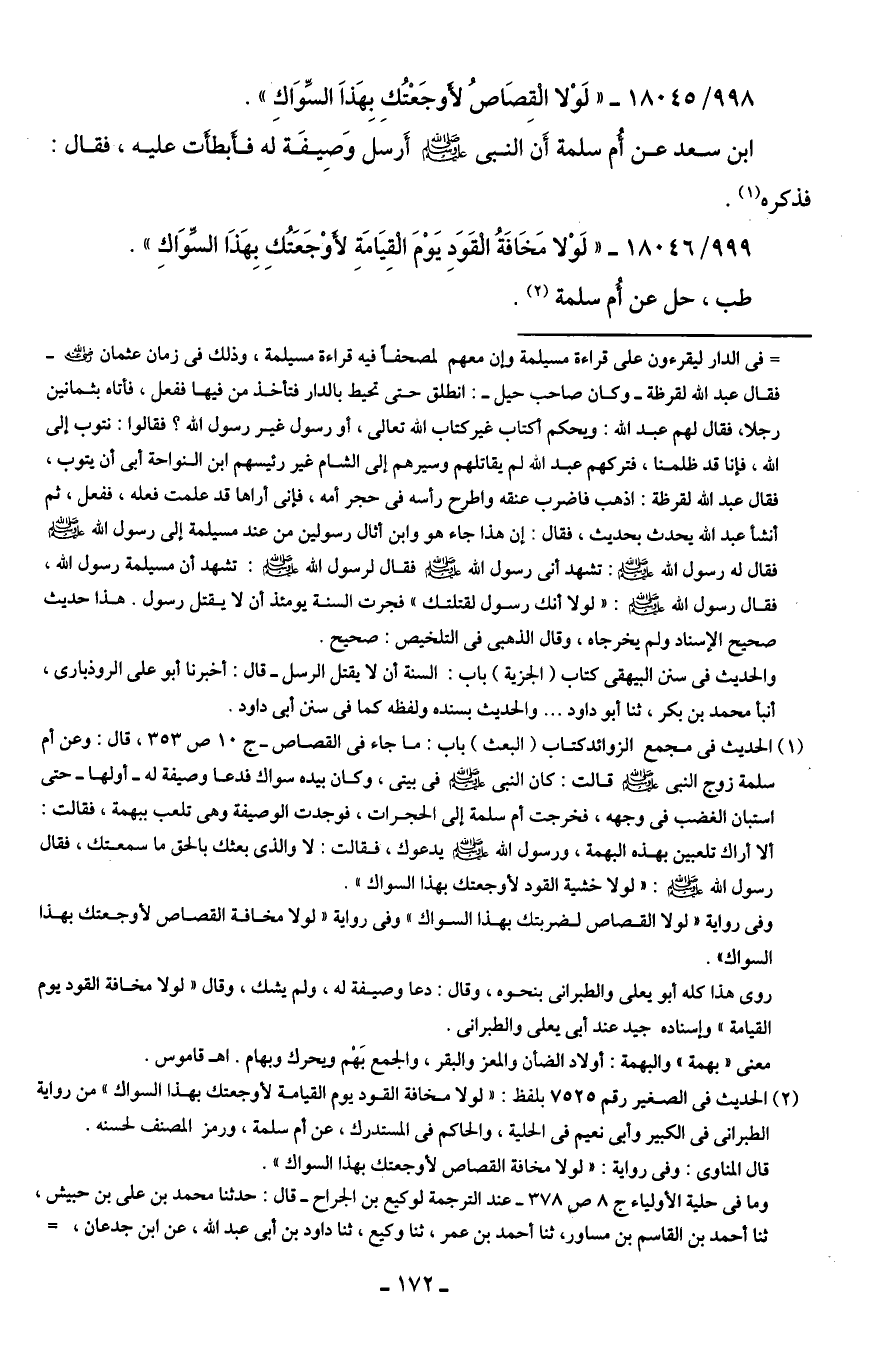 ٩٩٨/ ١٨٠٤٥ ـ « لَوْلا الْقِصَاصُ لأَوجَعْتُكِ بِهَذاَ السِّوَاكِ » .
ابن سعد عن أُم سلمة أَن النبى ﷺ أَرسل وَصِيفَة له فأَبطأَت عليه ، فقال :
فذكره(١) .
٩٩٩/ ١٨٠٤٦ ـ « لَوْلا مَخَافَةُ القَوَدِ يَوْمَ الْقِيَامَةِ لأَوْجَعَتُكِ بِهَذَا السِّوَاكِ » .
طب ، حل عن أُم سلمة (٢) .
= فى الدار ليقرءون على قراءة مسيلمة وإن معهم لمصحفاً فيه قراءة مسيلمة ، وذلك فى زمان عثمان رضي الله عنه ـ
فقال عبد الله لقرظة ـ وكان صاحب حيل ـ : انطلق حتى تحيط بالدار فتأخذ من فيها ففعل ، فأتاه بثمانين
رجلا، فقال لهم عبد الله : ويحكم أكتاب غير كتاب الله تعالى ، أو رسول غير رسول الله ؟ فقالوا : نتوب إلى
الله ، فإنا قد ظلمنا ، فتركهم عبد الله لم يقاتلهم وسيرهم إلى الشام غير رئيسهم ابن النواحة أبى أن يتوب ،
فقال عبد الله لقرظة : اذهب فاضرب عنقه واطرح رأسه فى حجر أمه ، فإنى أراها قد علمت فعله ، ففعل ، ثم
أنشأ عبد الله يحدث بحديث ، فقال : إن هذا جاء هو وابن أثال رسولين من عند مسيلمة إلى رسول الله ﷺ
فقال له رسول الله ﷺ : تشهد أنى رسول الله ﷺ فقال لرسول الله ﷺ : تشهد أن مسيلمة رسول الله ،
فقال رسول الله ﷺ : « لولا أنك رسول لقتلتك » فجرت السنة يومئذ أن لا يقتل رسول . هذا حديث
صحيح الإسناد ولم يخرجاه ، وقال الذهبى فى التلخيص : صحيح .
والحديث فى سنن البيهقى كتاب ( الجزية ) باب : السنة أن لا يقتل الرسل ـ قال : أخبرنا أبو على الروذبارى ،
أنبأ محمد بن بكر ، ثنا أبو داود ... والحديث بسنده ولفظه كما فى سنن أبى داود .
(١) الحديث فى مجمع الزوائد كتاب ( البعث ) باب : ما جاء فى القصاص ـ ج ١٠ ص ٣٥٣ ، قال : وعن أم
سلمة زوج النبى ﷺ قالت : كان النبى ﷺ فى بيتى ، وكان بيده سواك فدعا وصيفة له ـ أولها ـ حتى
استبان الغضب فى وجهه ، فخرجت أم سلمة إلى الحجرات ، فوجدت الوصيفة وهى تلعب ببهمة ، فقالت :
ألا أراك تلعبين بهذه البهمة ، ورسول الله ﷺ يدعوك ، فقالت : لا والذى بعثك بالحق ما سمعتك ، فقال
رسول الله ﷺ : « لولا خشية القود لأوجعتك بهذا السواك » .
وفى رواية « لولا القصاص لضربتك بهذا السواك » وفى رواية « لولا مخافة القصاص لأوجعتك بهذا
السواك» .
روى هذا كله أبو يعلى والطبرانى بنحوه ، وقال : دعا وصيفة له ، ولم يشك ، وقال « لولا مخافة القود يوم
القيامة » وإسناده جيد عند أبى يعلى والطبرانى .
معنى « بهمة » والبهمة : أولاد الضأن والمعز والبقر ، والجمع بَهْم ويحرك وبهام . اهـ قاموس .
(٢) الحديث فى الصغير رقم ٧٥٢٥ بلفظ : « لولا مخافة القود يوم القيامة لأوجعتك بهذا السواك » من رواية
الطبرانى فى الكبير وأبى نعيم فى الحلية ، والحاكم فى المستدرك ، عن أم سلمة ، ورمز المصنف لحسنه .
قال المناوى : وفى رواية : « لولا مخافة القصاص لأوجعتك بهذا السواك » .
وما فى حلية الأولياء ج ٨ ص ٣٧٨ ـ عند الترجمة لوكيع بن الجراح ـ قال : حدثنا محمد بن على بن حبيش ،
ثنا أحمد بن القاسم بن مساور، ثنا أحمد بن عمر ، ثنا وكيع ، ثنا داود بن أبى عبد الله ، عن ابن جدعان ، =
ـ ١٧٢ ـ